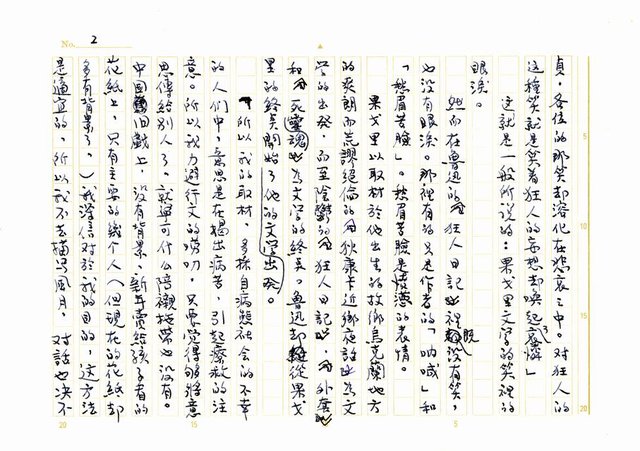 No. 2
貞,各位的那笑却溶化在悲哀之中。对狂人的
這種笑就是笑着狂人的妄想却喚起哀憐」
這就是一般所說的:果戈里文学的笑裡的
眼淚。
然而在魯迅的《狂人日記》裡既没有笑,
也没有眼淚。那裡有的只是作者的「吶喊」和
「愁眉苦臉」。愁眉苦臉是的表情。
果戈里以取材於他出生的故鄉烏克蘭地方
的爽朗而荒謬絕倫的《狄康卡近鄉夜話》為文
学的出発,而至陰鬱的《狂人日記》,《外套》
和《死靈魂》為文学的終臭。魯迅却從果戈
里的終臭開始了他的文学出発。
「所以我的取材,多採自病態社会的不幸
的人們中,意思是在揭出病苦,引起療救的注
意。所以我力避行文的嘮叨,只要覺得夠將意
思傳給別人了,就寧可什么陪襯拖带也没有。
中國旧戲上,没有背景,新年賣給孩子看的
花紙上,只有主要的幾个人(但現在的花紙却
多有背景了,)我深信对於我的目的,這方法
是適宜的,所以我不去描写風月,对話也决不
5
10
15
20
20
15
5